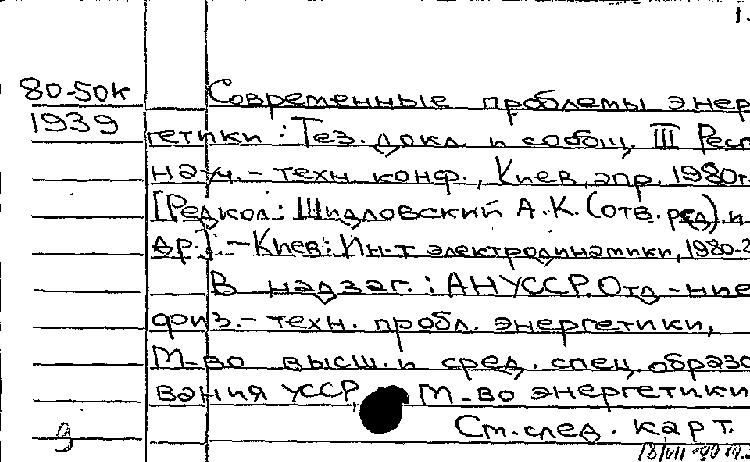 1.
80-50к Современные проблемы энер
1939 гетики: Тез. докл. и сообщ. III Респ
науч.-техн. конф., Киев, апр. 1980г.
[Редкол.: Шидловский А.К. (отв. ред.) и
др.]. - Киев: Ин-т электродинамики, 1980-2
В надзаг.: АН УССР. Отд-ние
физ.-техн. пробл. энергетики,
М-во высш. и сред. спец. образо
вания УССР, М-во энергетики
См. след. карт.